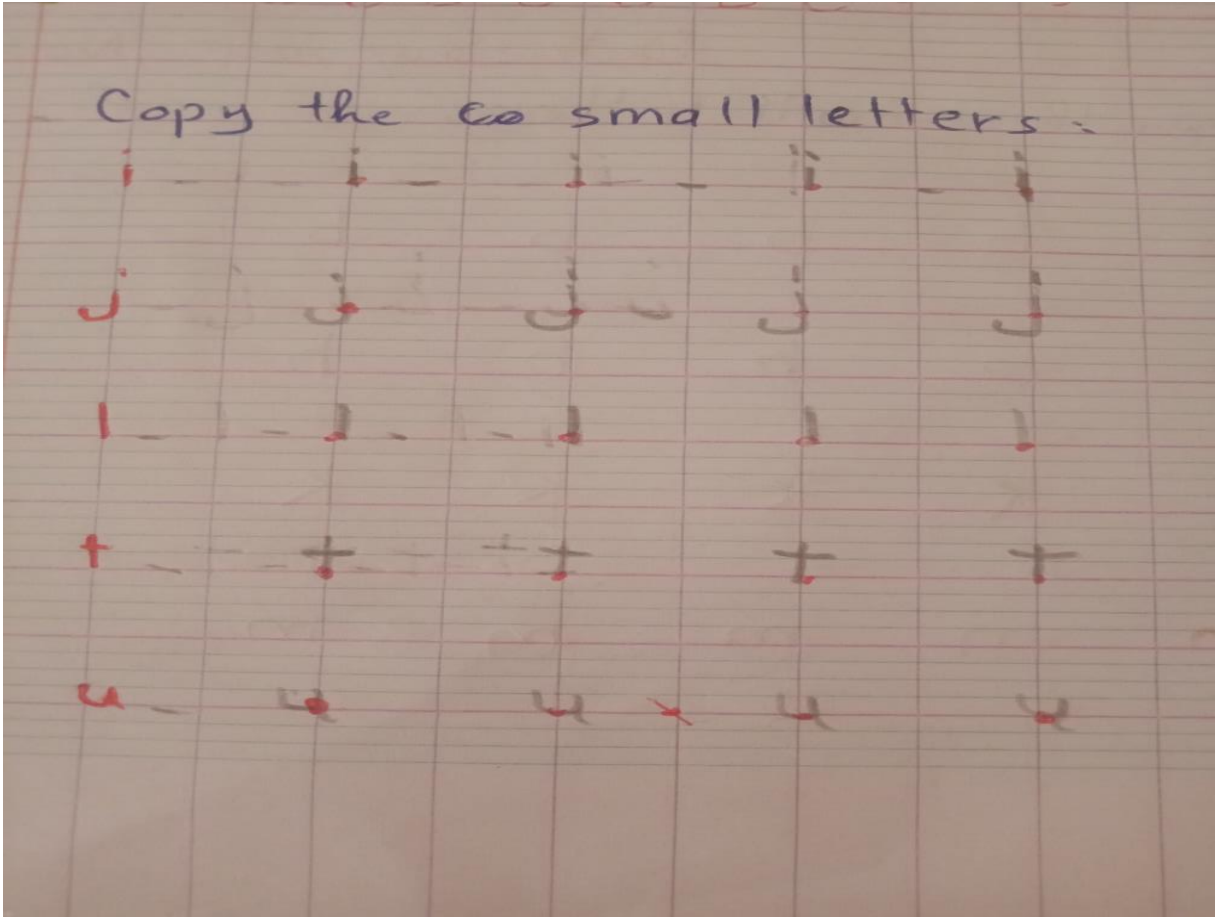 Copy the co small letters.
i i i i i
j j j j j
l l l l l
t t t t t
u u u u u